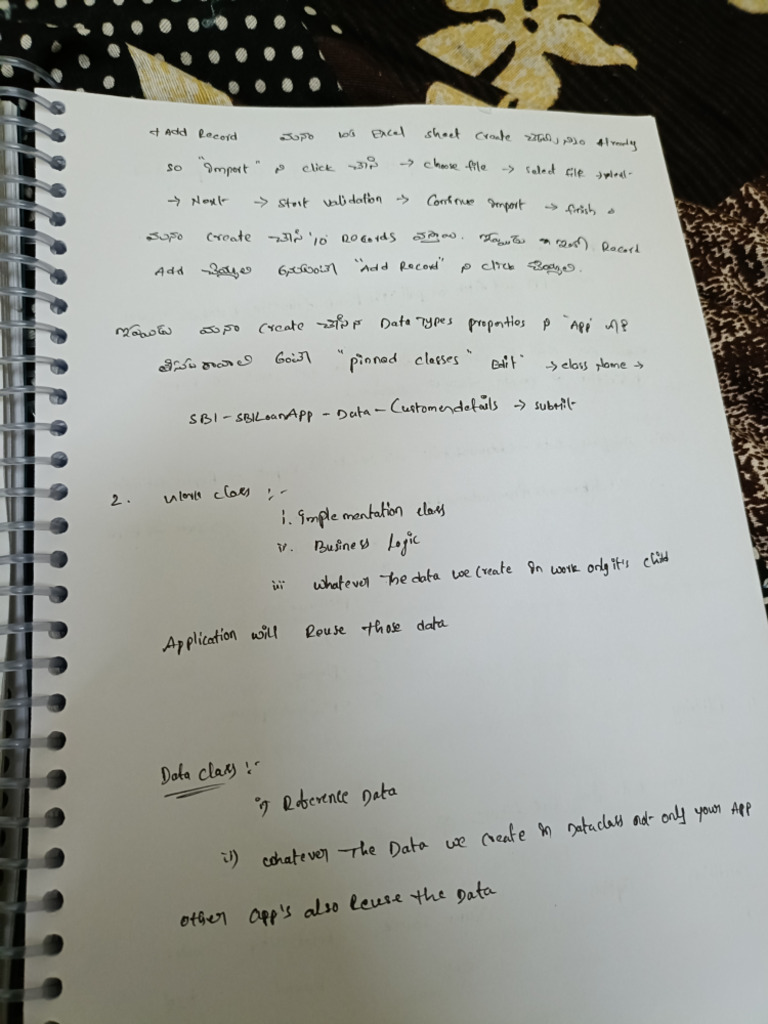 + Add Record మనం ఒక Excel sheet create చేసు Already
so "Import" ని click చేసి → choose file → select file →
→ Next → Start validation → Continue Import → finish
మనం create చేసిన '10' Records వస్తాయి. ఇప్పుడు Record
Add చెయ్యాలి అనుకుంటే "Add Record" ని click చెయ్యాలి.
ఇప్పుడు మనం create చేసిన Data Types properties ని "App" లోకి
తీసుకురావాలి అంటే "pinned classes" Edit → class Name →
SBI-SBILoanApp-Data-Customerdetails → submit
2. Work class :-
i. Implementation class
ii. Business Logic
iii whatever the data we create in work only it's child
Application will Reuse those data
Data class :-
i) Reference Data
ii) whatever The Data we create in Dataclass not only your App
other app's also Reuse the Data